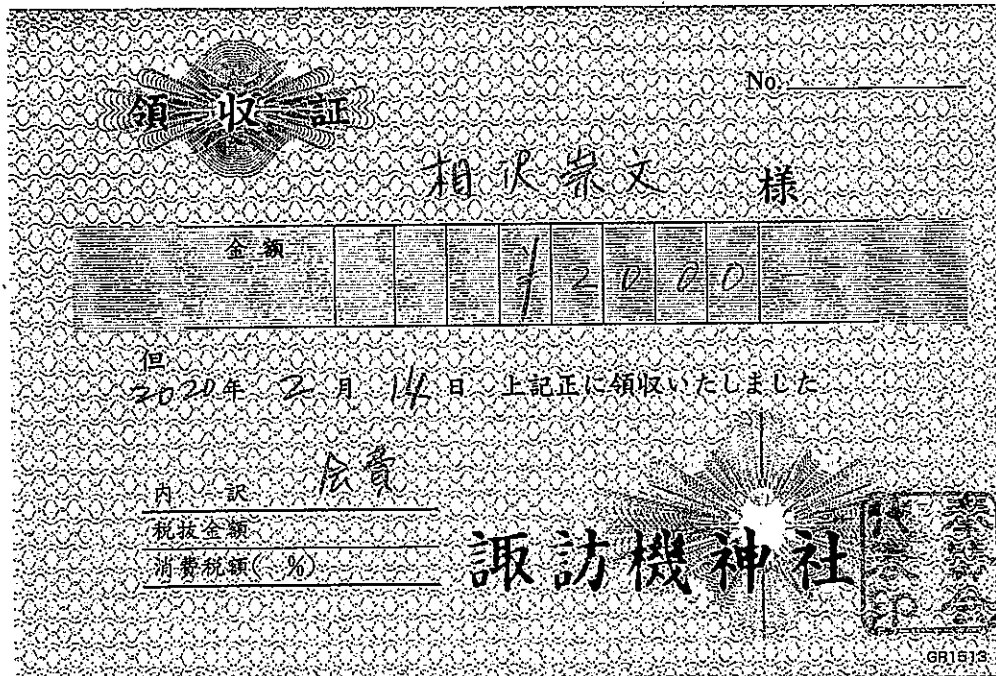 領収証
No.
相沢崇文 様
金額 ¥2000-
但
2020年 2月 14日 上記正に領収いたしました
内訳 会費
税抜金額
消費税額( %)
諏訪機神社
GR1513